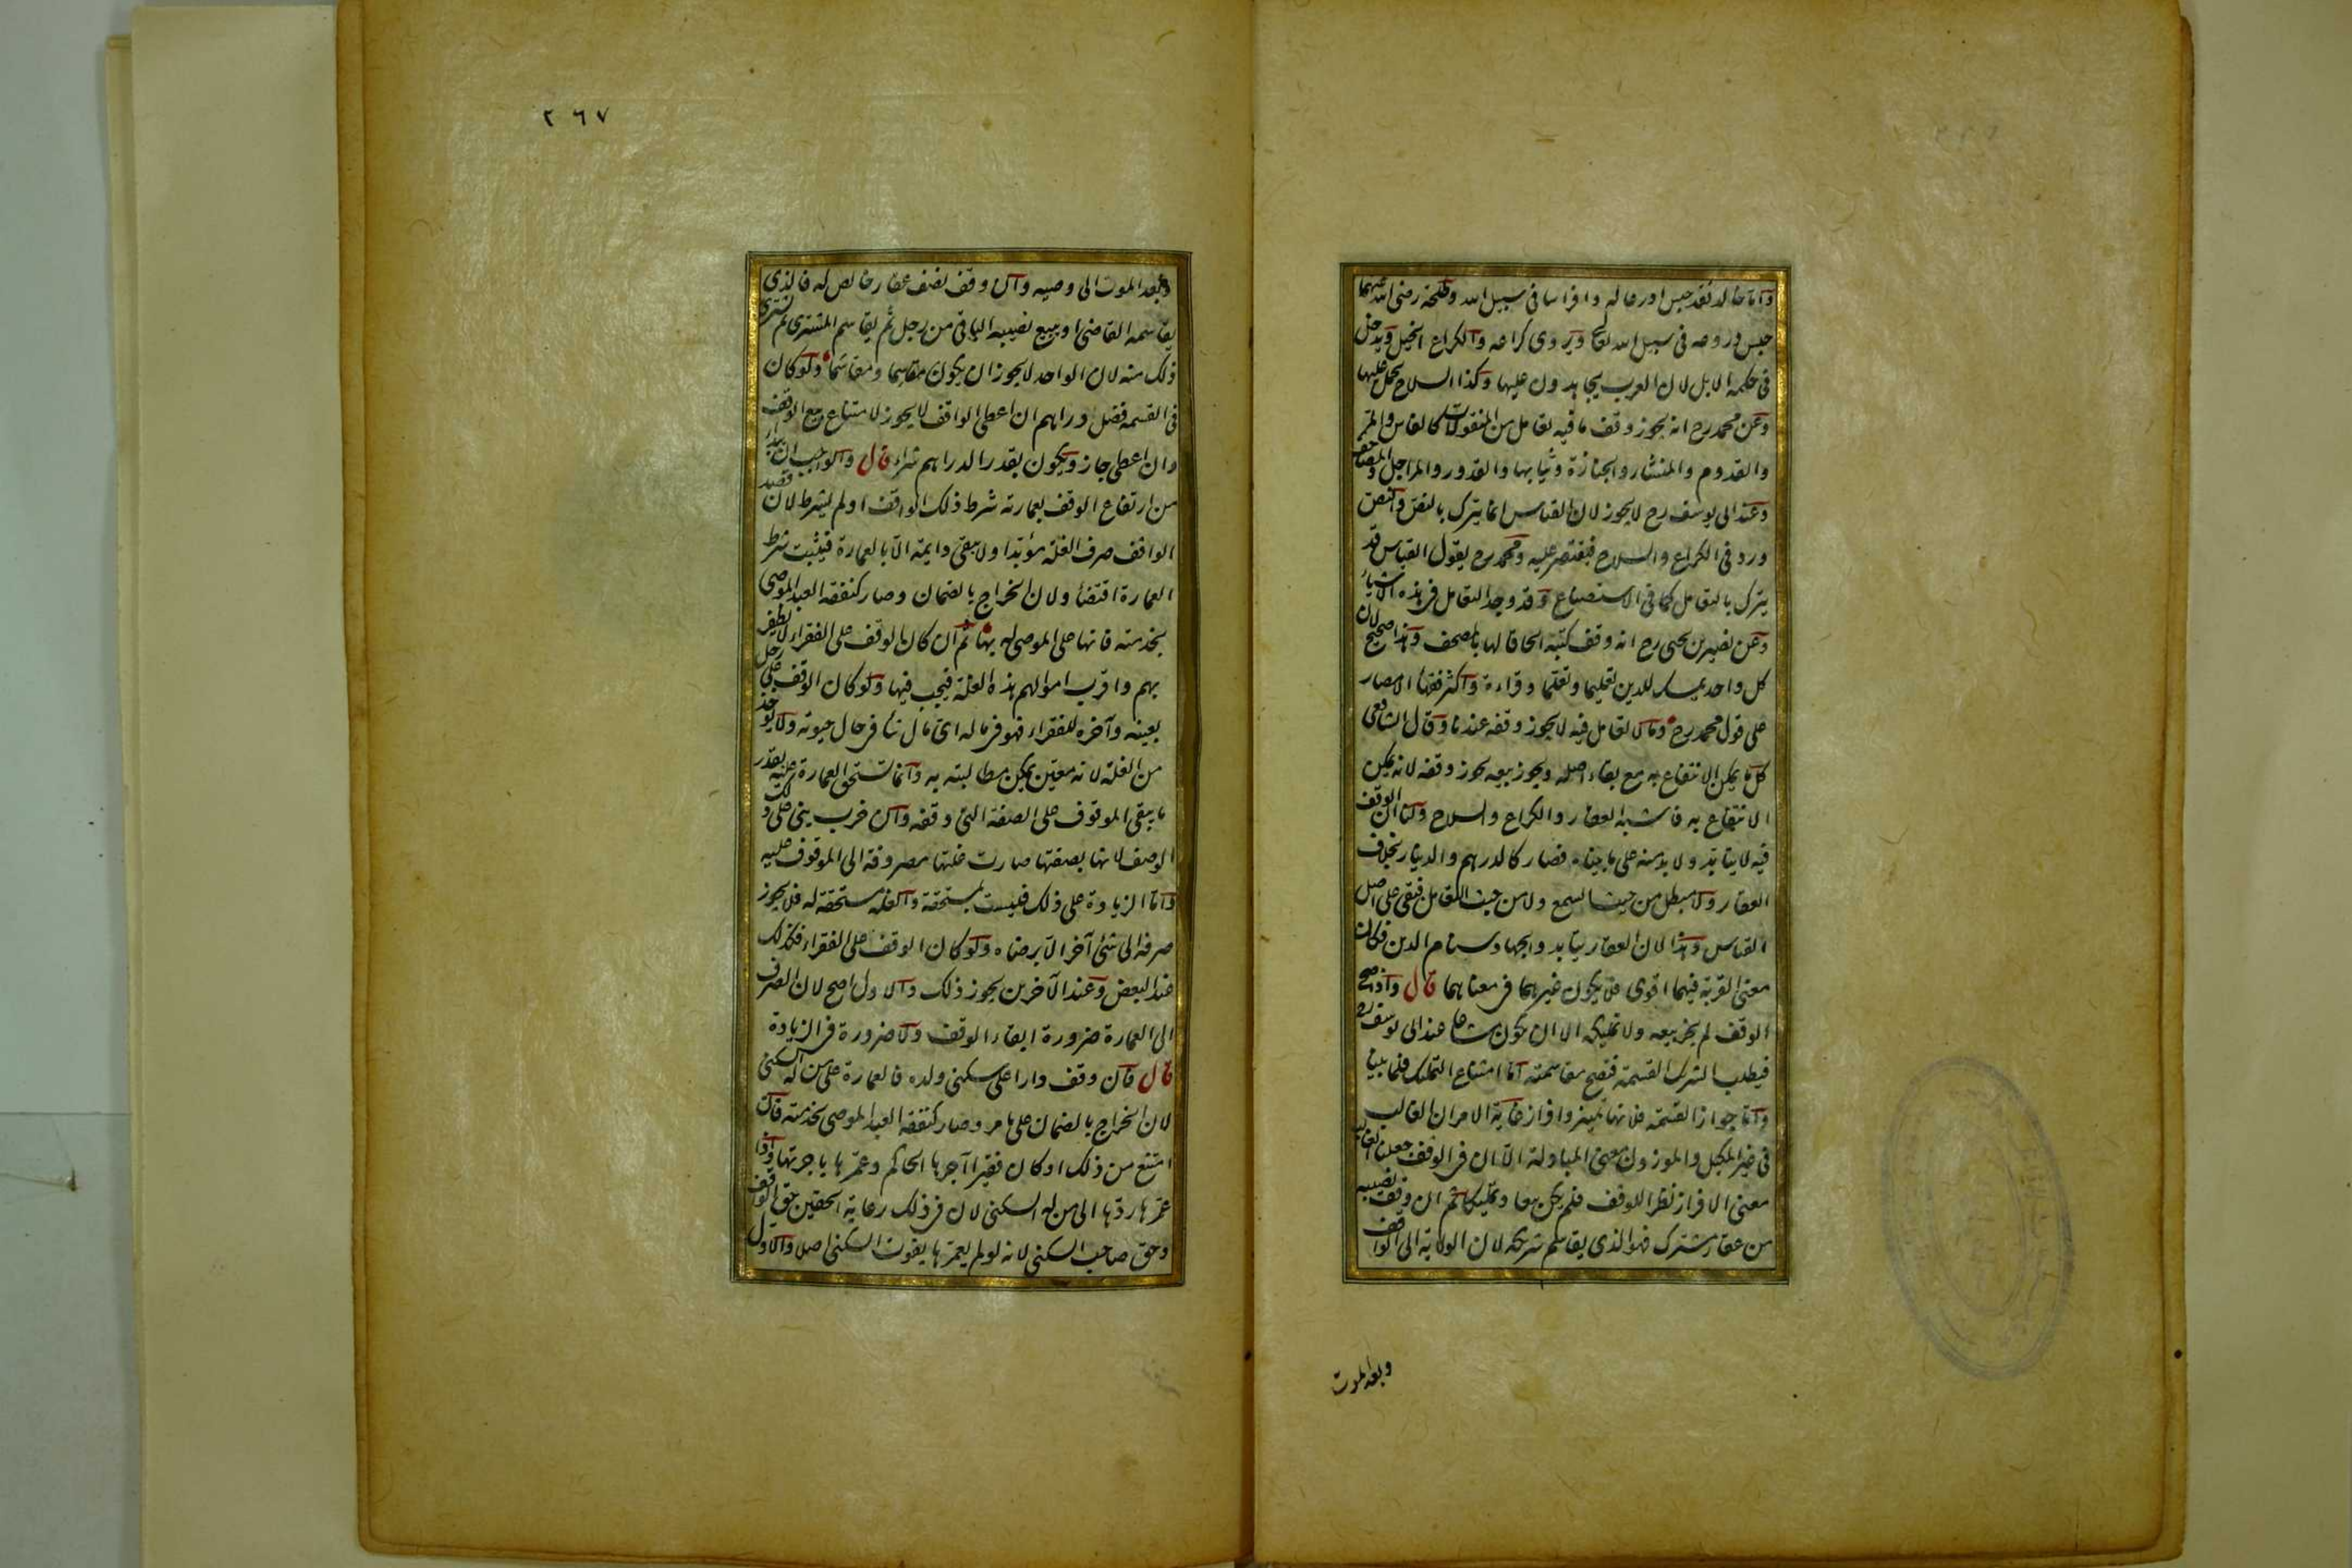 واما خالد فقد حبس ادرعا له وافراسا في سبيل الله وطلحة رضي الله عنهما
حبس دروعه في سبيل الله تعالى ويروى كراعه والكراع الخيل ويدخل
في حكمه الابل لان العرب يجاهدون عليها وكذا السلاح يحمل عليها
وعن محمد رح انه يجوز وقف ما فيه تعامل من المنقولات كالفاس والمر
والقدوم والمنشار والجنازة وثيابها والقدور والمراجل والمصاحف
وعند ابي يوسف رح لا يجوز لان القياس انما يترك بالنص والنص
ورد في الكراع والسلاح فيقتصر عليه ومحمد رح يقول القياس قد
يترك بالتعامل كما في الاستصناع وقد وجد التعامل في هذه الاشياء
وعن نصير بن يحيى رح انه وقف كتبه الحاقا لها بالمصحف وهذا صحيح لان
كل واحد يمسك للدين تعليما وتعلما وقراءة واكثر فقهاء الامصار
على قول محمد رح وما لا تعامل فيه لا يجوز وقفه عندنا وقال الشافعي
كل ما يمكن الانتفاع به مع بقاء اصله ويجوز بيعه يجوز وقفه لانه يمكن
الانتفاع به فاشبه العقار والكراع والسلاح ولنا ان الوقف
فيه لا يتابد ولا بد منه على ما بيناه فصار كالدرهم والدينار بخلاف
العقار ولا مبطل من حيث السمع ولا من حيث التعامل فبقي على اصل
القياس وهذا لان العقار يتابد والجهاد سنام الدين فكان
معنى القربة فيهما اقوى فلا يكون غيرهما في معناهما قال واذا صح
الوقف لم يجز بيعه ولا تمليكه الا ان يكون مشاعا عند ابي يوسف رح
فيطلب الشريك القسمة فتصح مقاسمته اما امتناع التمليك فلما بينا
واما جواز القسمة فلانها تمييز وافراز غاية الامر ان الغالب
في غير المكيل والموزون معنى المبادلة الا ان في الوقف جعلنا الغالب
معنى الافراز نظرا للوقف فلم يكن بيعا وتمليكا ثم ان وقف نصيبه
من عقار مشترك فهو الذي يقاسم شريكه لان الولاية الى الواقف
وبعد الموت
٢٦٧
وبعد الموت الى وصيه وان وقف نصف عقار خالص له فالذي
يقاسمه القاضي او يبيع نصيبه الباقي من رجل ثم يقاسم المشتري ثم يشتري
ذلك منه لان الواحد لا يجوز ان يكون مقاسما ومقاسما ولو كان
في القسمة فضل دراهم ان اعطى الواقف لا يجوز لامتناع بيع الوقف
وان اعطى جاز ويكون بقدر الدراهم شراء قال والواجب ان يبدأ
من ارتفاع الوقف بعمارته شرط ذلك الواقف او لم يشرط لان قصد
الواقف صرف الغلة مؤبدا ولا يبقى دايمة الا بالعمارة فيثبت شرط
العمارة اقتضاء ولان الخراج بالضمان وصار كنفقة العبد الموصى
بخدمته فانها على الموصى له بها ثم ان كان الوقف على الفقراء لا يظفر
بهم واقرب اموالهم هذه الغلة فيجب فيها ولو كان الوقف على رجل
بعينه وآخره للفقراء فهو في ماله اي مال شاء في حال حيوته ولا يؤخذ
من الغلة لانه معين يمكن مطالبته به وانما تستحق العمارة عليه بقدر
ما يبقى الموقوف على الصفة التي وقفه وان خرب يبنى على ذلك
الوصف لانها بصفتها صارت غلتها مصروفة الى الموقوف عليه
واما الزيادة على ذلك فليست بمستحقة والغلة مستحقة له فلا يجوز
صرفه الى شئ آخر الا برضاه ولو كان الوقف على الفقراء فكذلك
عند البعض وعند الآخرين يجوز ذلك والاول اصح لان الصرف
الى العمارة ضرورة ابقاء الوقف ولا ضرورة في الزيادة
قال فان وقف دارا على سكنى ولده فالعمارة على من له السكنى
لان الخراج بالضمان على ما مر وصار كنفقة العبد الموصى بخدمته فان
امتنع من ذلك او كان فقيرا آجرها الحاكم وعمرها باجرتها واذا
عمرها ردها الى من له السكنى لان في ذلك رعاية الحقين حق الواقف
وحق صاحب السكنى لانه لو لم يعمرها يفوت السكنى اصلا والاول